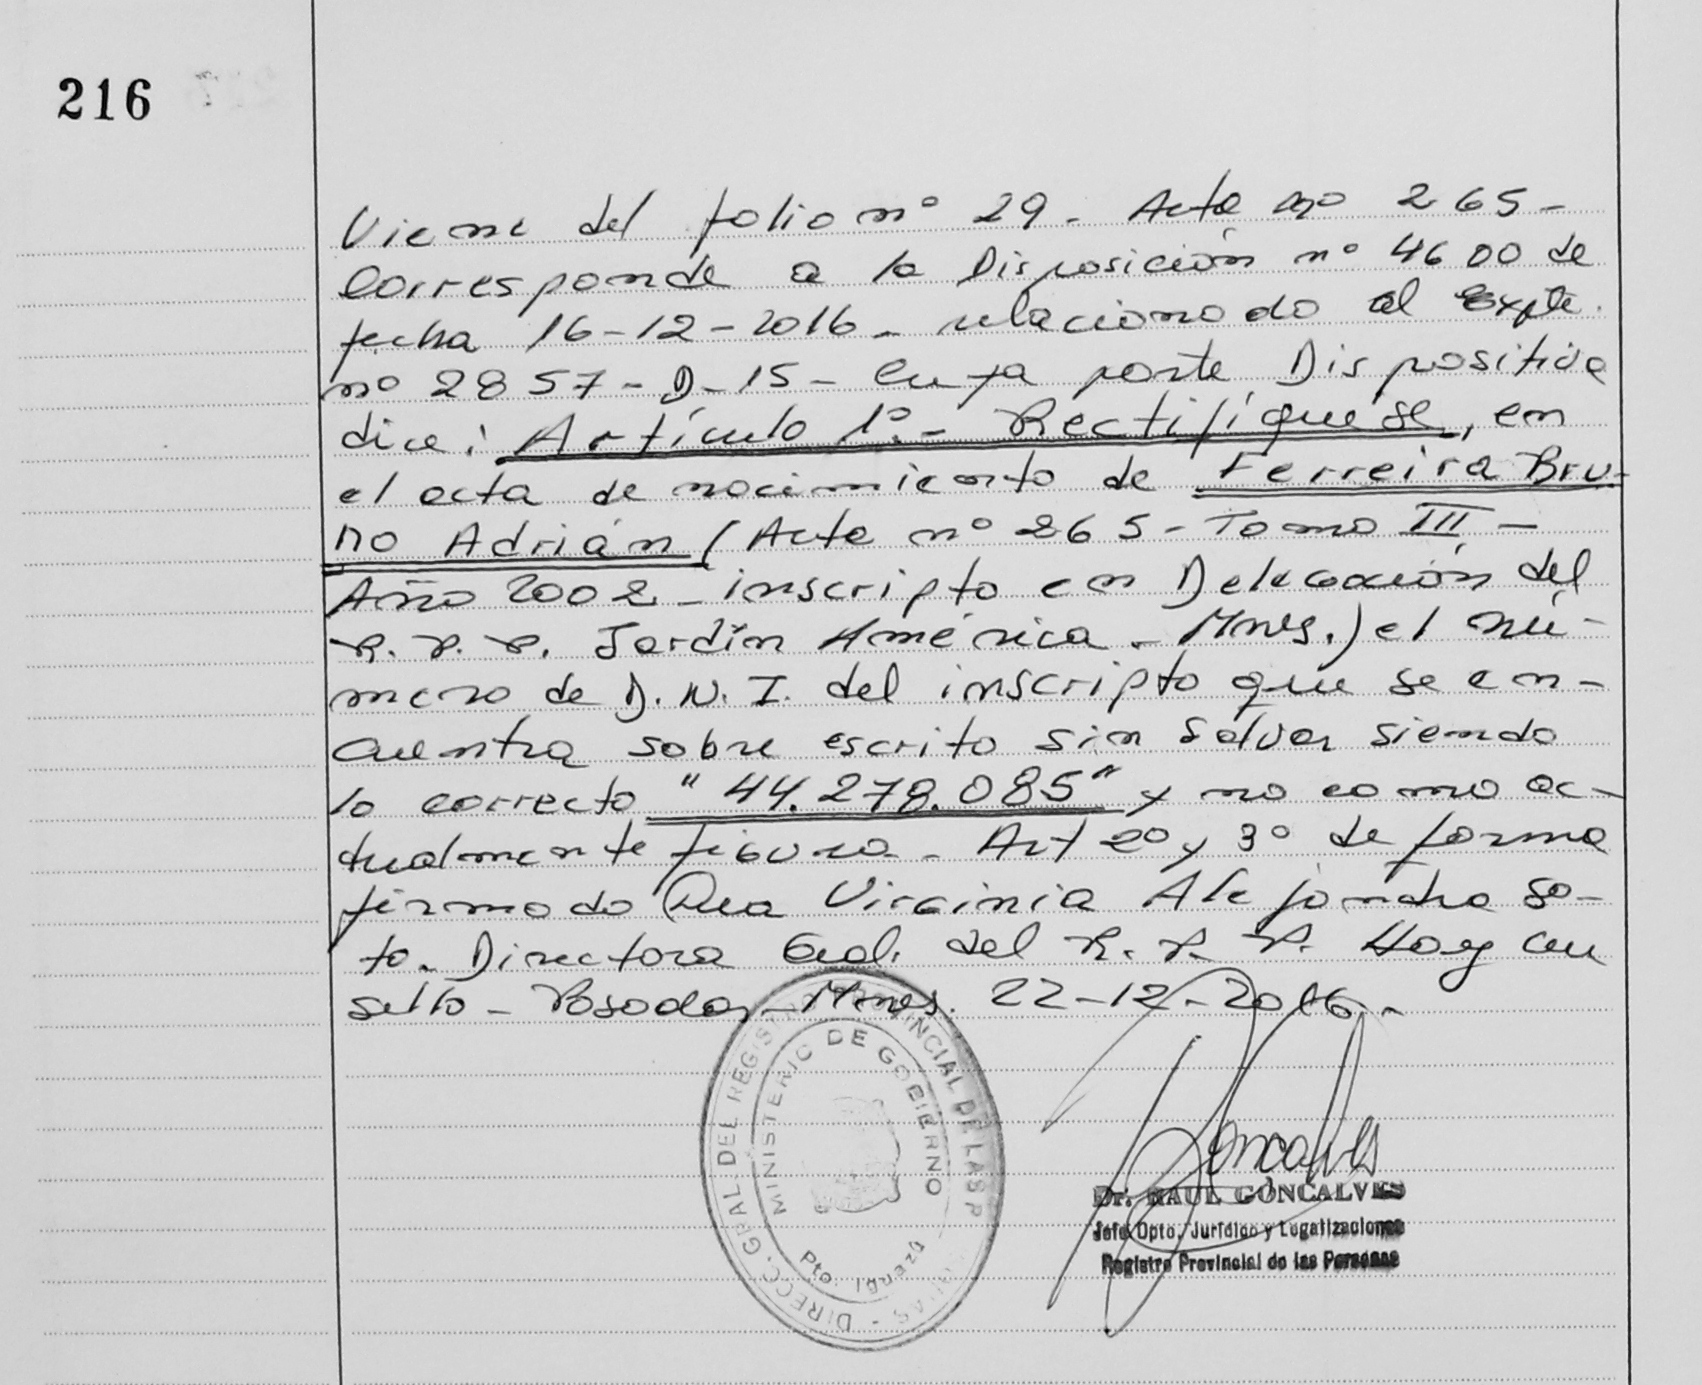 216
Viene del folio nº 29 - Acta nº 265 -
Corresponde a la Disposición nº 4600 de
fecha 16-12-2016 - relacionado al Expte.
nº 2857-D-15 - Cuya parte Dispositiva
dice: Artículo 1º.- Rectifíquese, en
el acta de nacimiento de Ferreira Bru-
no Adrián (Acta nº 265 - Tomo III -
Año 2002 - inscripto en Delegación del
R.P.P. Jardín América - Mnes.) el nú-
mero de D.N.I. del inscripto que se en-
cuentra sobre escrito sin salvar siendo
lo correcto "44.278.085" y no como ac-
tualmente figura - Art 2º y 3º de forma
firmado Dra Virginia Alejandra So-
to - Directora Gral. del R.P.P. Hay un
sello - Posadas - Mnes. 22-12-2016.-
DIRECC. GRAL DEL REGISTRO PROVINCIAL DE LAS P
MINISTERIO DE GOBIERNO
Pto. Iguazú
Goncalves
Dr. RAUL GONCALVES
Jefe Dpto. Jurídico y Legalizaciones
Registro Provincial de las Personas